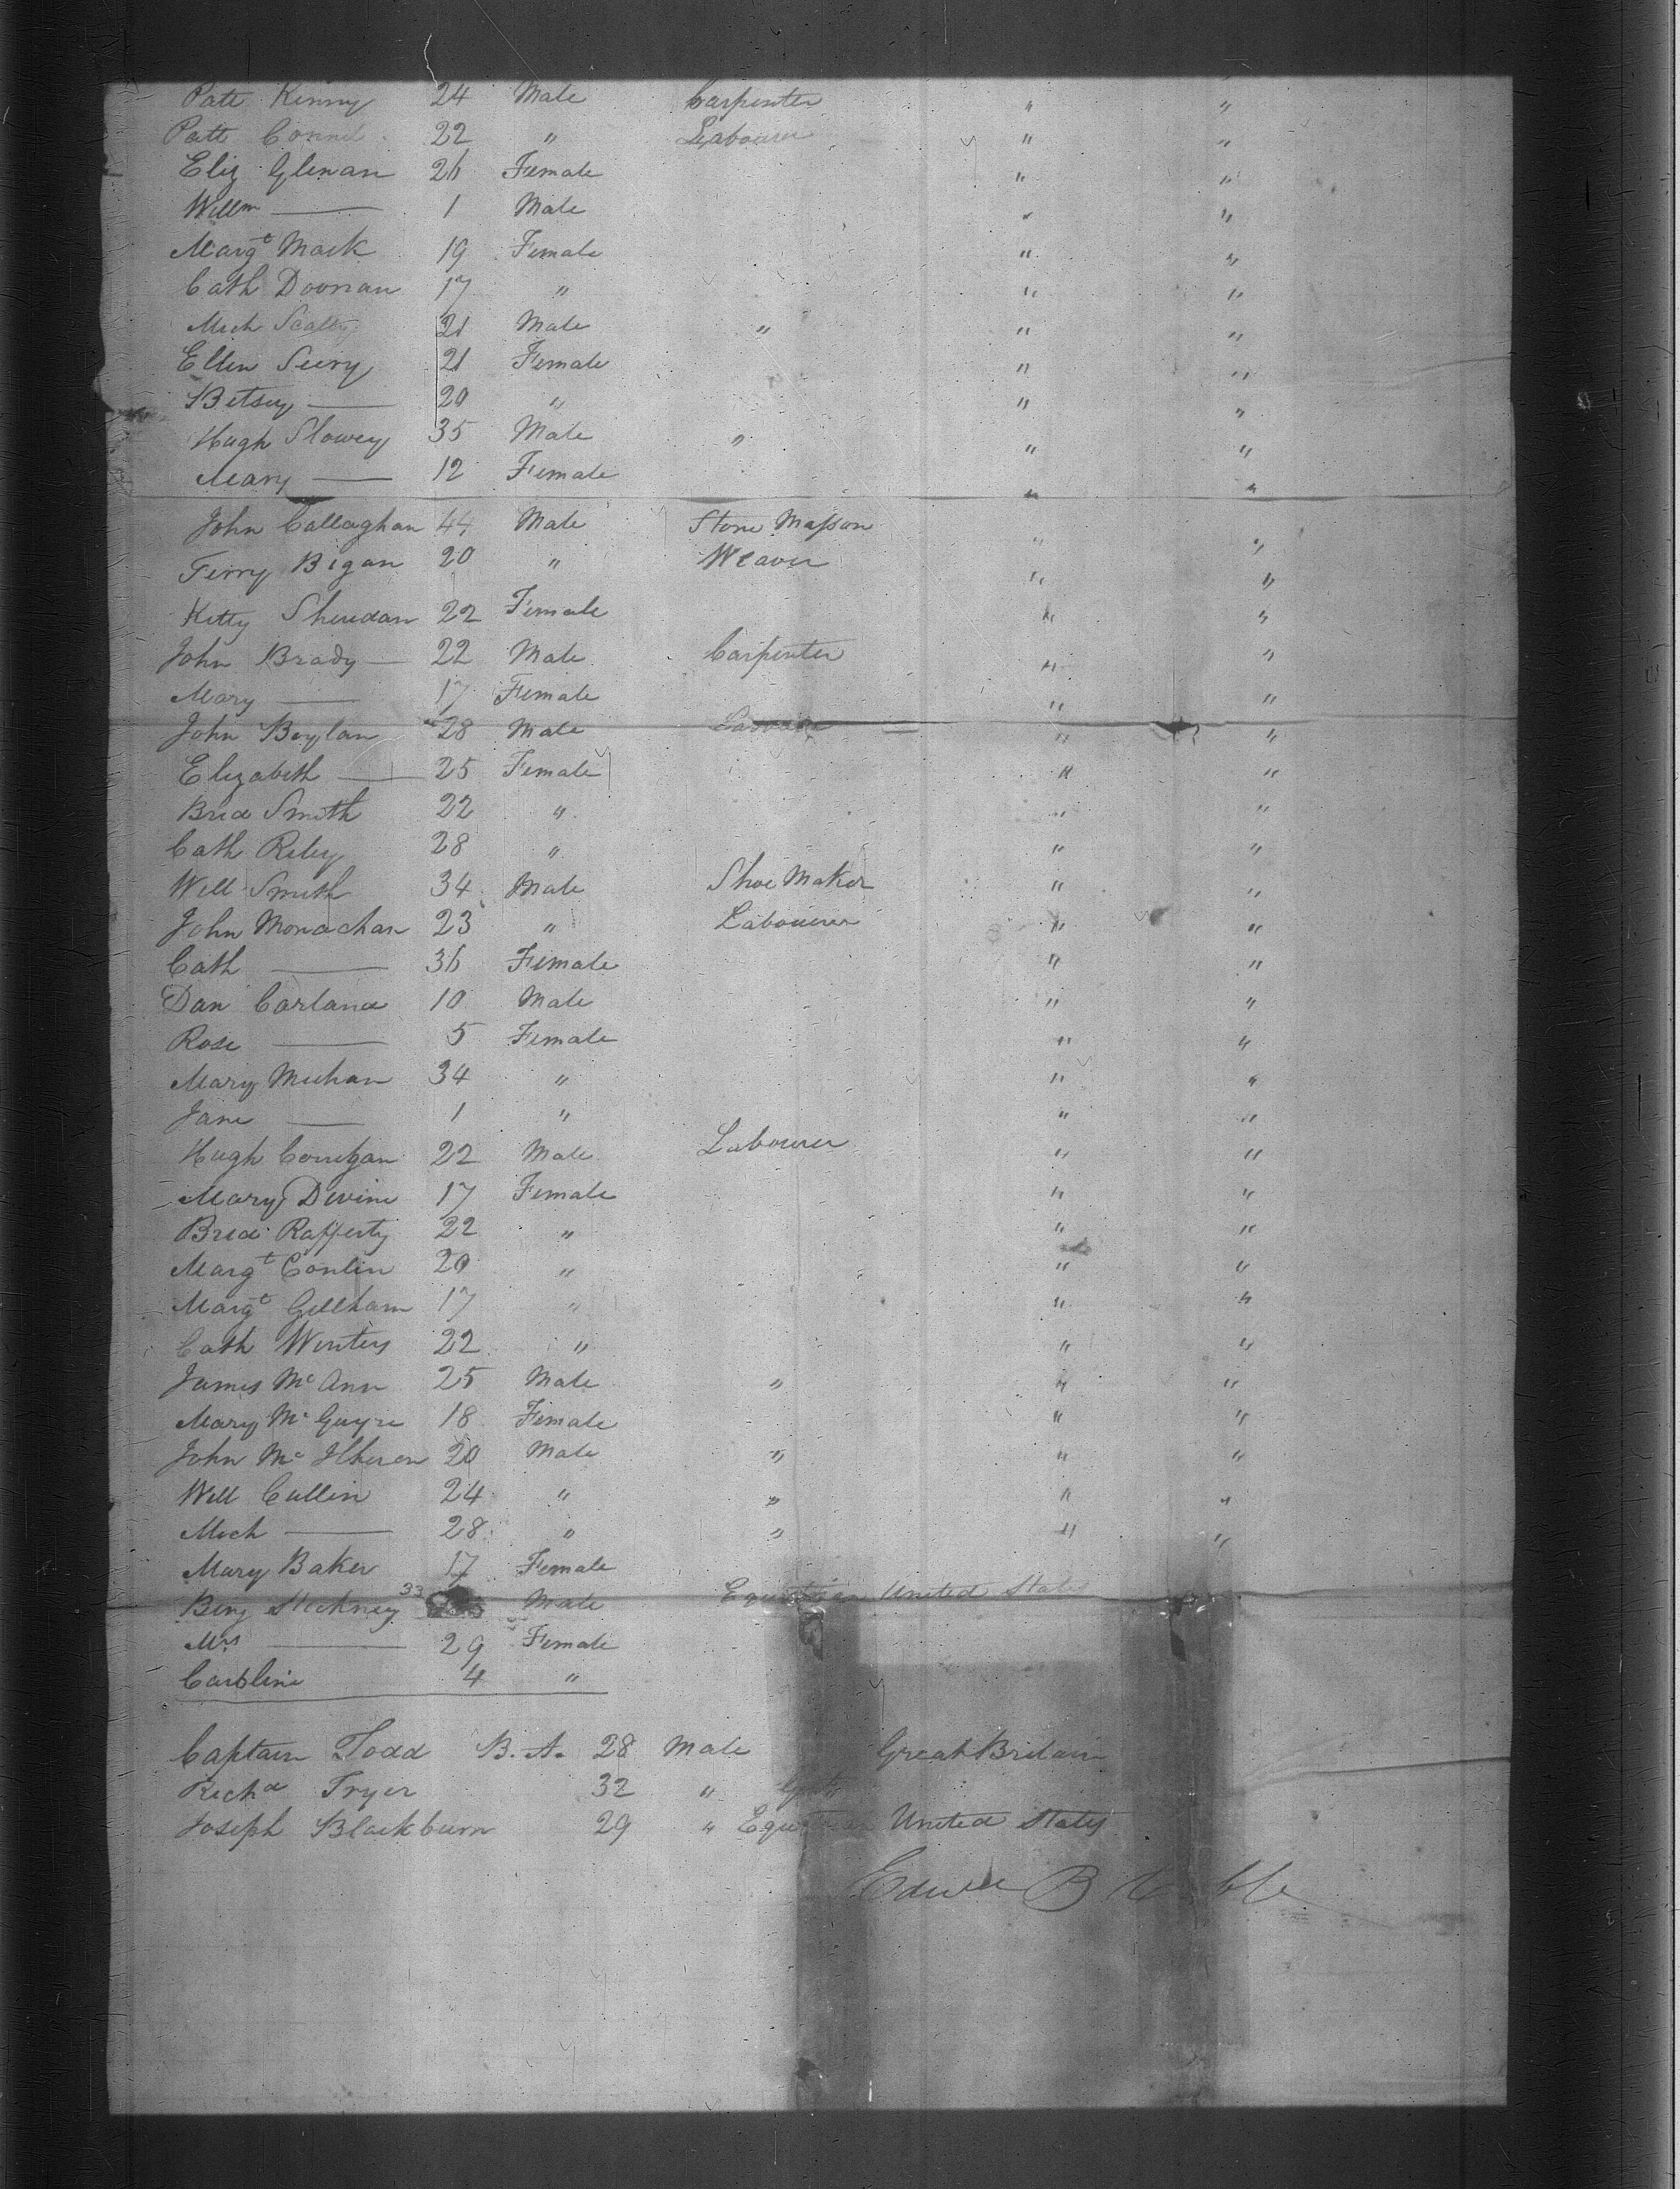 Patt Kenny 24 Male Carpenter " "
Patt Connel 22 " Labourer " "
Eliz Glenan 26 Female " "
Willm —— 1 Male " "
Margt Mack 19 Female " "
Cath Doonan 17 " " "
Mich Scally 21 Male " " "
Ellen Seery 21 Female " "
Betsey —— 20 " " "
Hugh Slowey 35 Male " " "
Mary —— 12 Female " "
John Callaghan 44 Male Stone Masson " "
Terry Bigan 20 " Weaver " "
Kitty Sheridan 22 Female " "
John Brady — 22 Male Carpenter " "
Mary —— 17 Female " "
John Boylan 28 Male " "
Elizabeth —— 25 Female " "
Brid Smith 22 " " "
Cath Riley 28 " " "
Will Smith 34 Male Shoe Maker " "
John Monachan 23 " Labourer " "
Cath —— 36 Female " "
Dan Carland 10 Male " "
Rose —— 5 Female " "
Mary Meehan 34 " " "
Jane —— 1 " " "
Hugh Corrigan 22 Male Labourer " "
Mary Devine 17 Female " "
Brid Rafferty 22 " " "
Margt Conlin 20 " " "
Margt Gillham 17 " " "
Cath Winters 22 " " "
James McAnn 25 Male " " "
Mary McGuyre 18 Female " "
John McIlheron 20 Male " " "
Will Cullin 24 " " " "
Mich —— 28 " " " "
Mary Baker 17 Female
Benj Stickney 33 Male Equestrian United States
Mrs —— 29 Female
Caroline 4 "
Captain Todd B. A. 28 Male Great Britain
Richd Fryer 32 "
Joseph Blackburn 29 " Equestrian United States